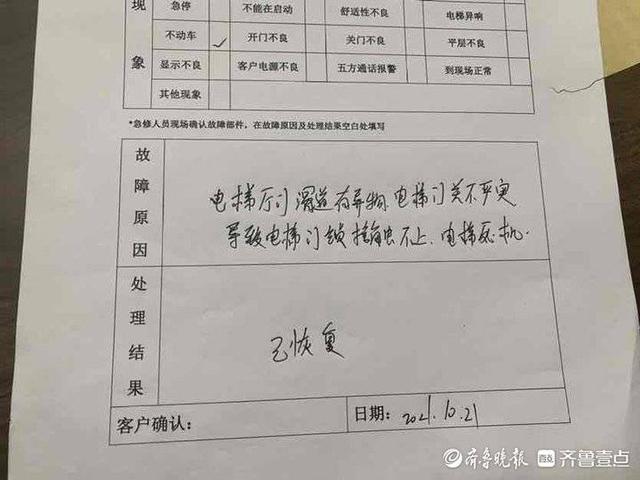 现象
急停 不能在启动 舒适性不良 电梯异响
不动车 ✓ 开门不良 关门不良 平层不良
显示不良 客户电源不良 五方通话报警 到现场正常
其他现象
*急修人员现场确认故障部件，在故障原因及处理结果空白处填写
故障原因
电梯厅门滑道有异物 电梯门关不严实
导致电梯门锁接触不上、电梯死机.
处理结果
已恢复
客户确认： 日期：2021.10.21
齐鲁晚报 齐鲁壹点